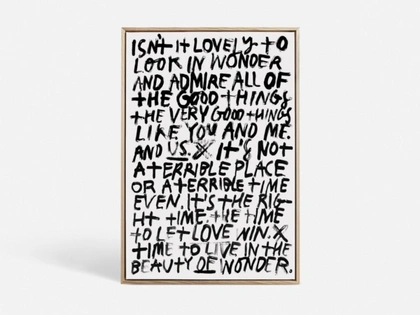 ISN'T IT LOVELY TO
LOOK IN WONDER
AND ADMIRE ALL OF
THE GOOD THINGS
THE VERY GOOD THINGS
LIKE YOU AND ME.
AND US. X IT'S NOT
A TERRIBLE PLACE
OR A TERRIBLE TIME
EVEN. IT'S THE RIG
HT TIME. THE TIME
TO LET LOVE WIN. X
TIME TO LIVE IN THE
BEAUTY OF WONDER.